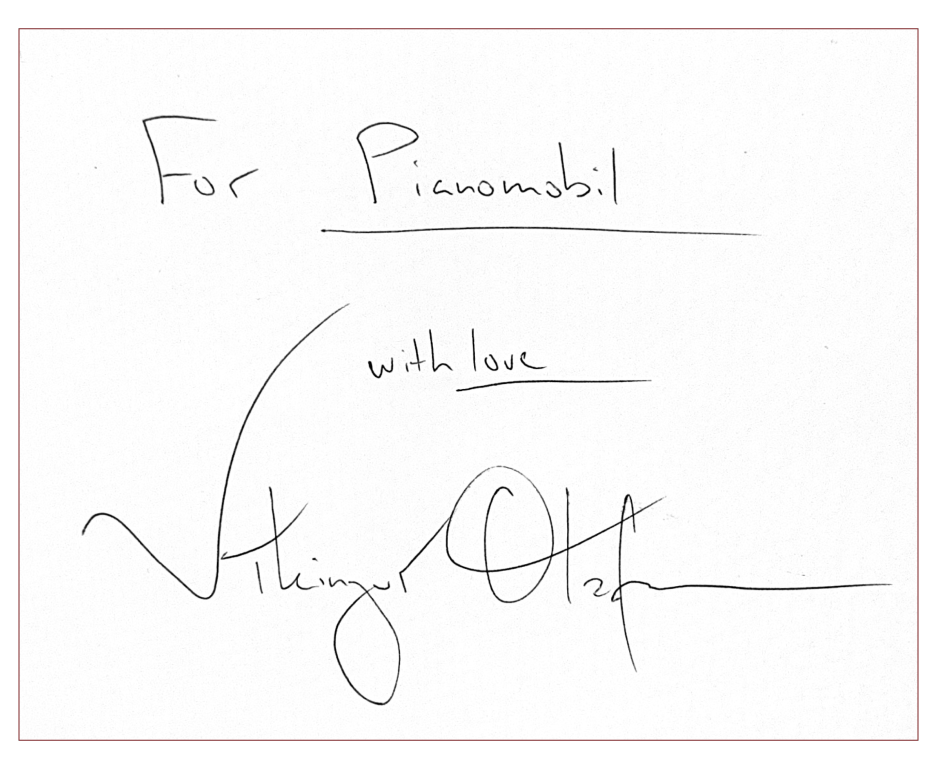 For Pianomobil
with love
Víkingur Ólaf